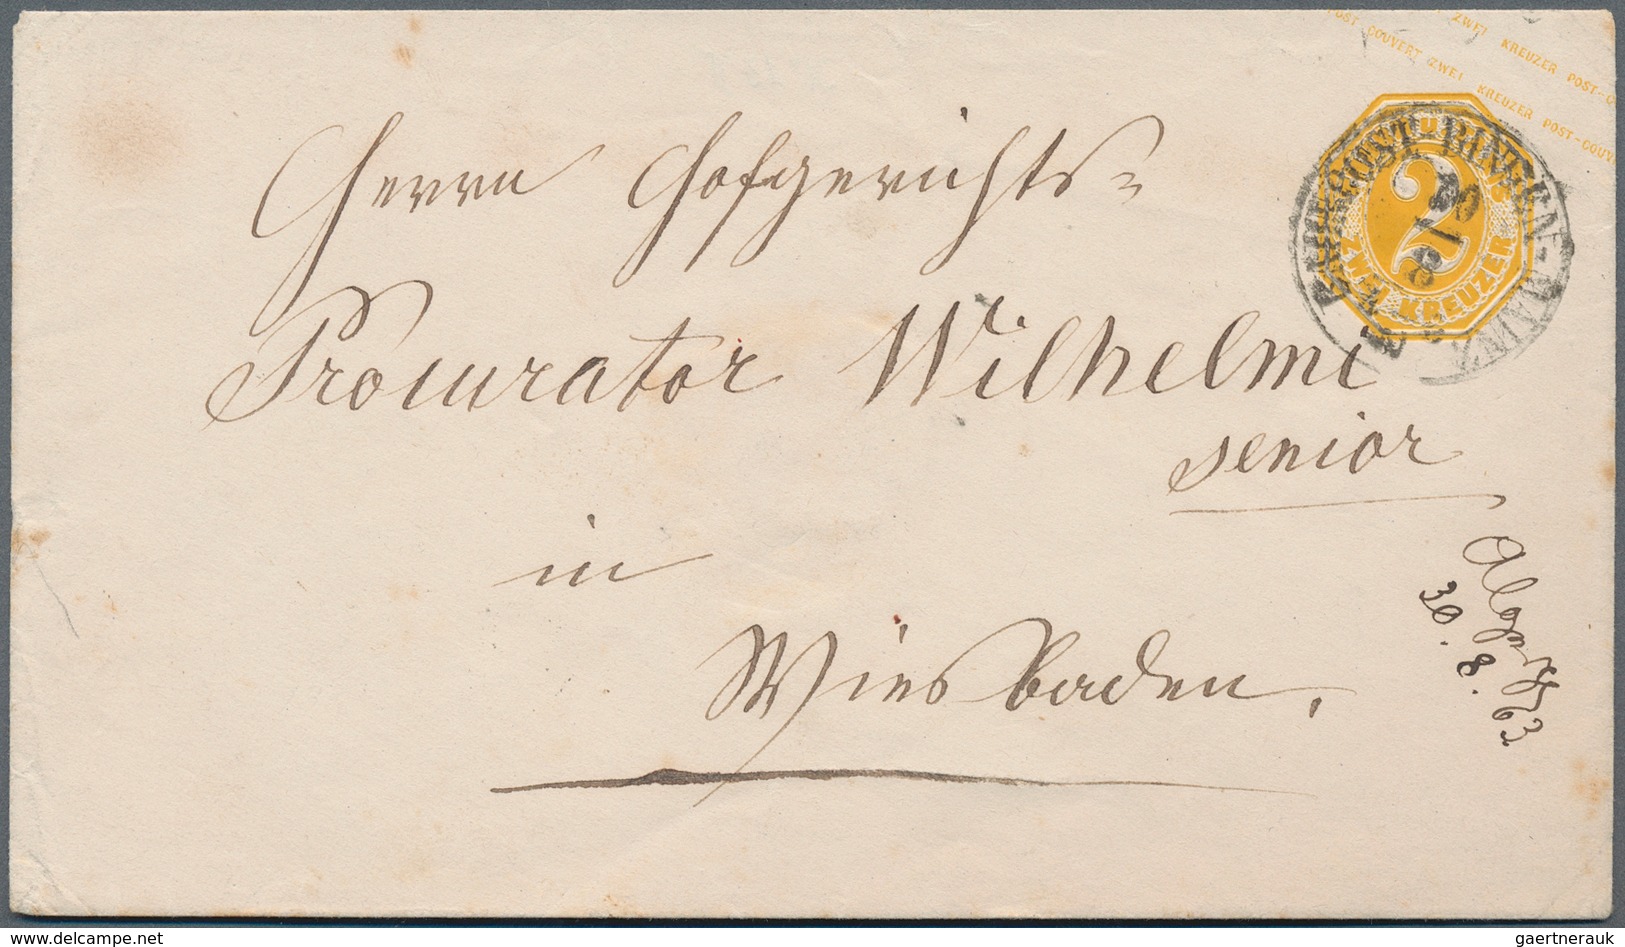 ZWEI KREUZER POST-COUVERT
POST-COUVERT ZWEI KREUZER POST-COUVERT
2
ZWEI KREUZER
Herrn Hofgerichts-
Procurator Wilhelmi
senior
in
Wiesbaden.
30. 8. 63.
delcampe.net
gaertnerauk